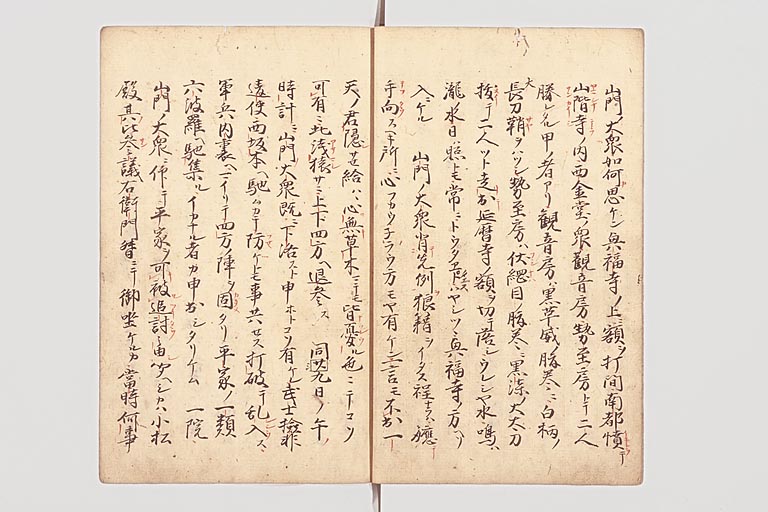 山門ノ大衆如何思ケン興福寺ノ上ニ額ヲ打間南都憤テ
山階寺ノ内西金堂ノ衆観音房勢至房トテ二人
勝レタル甲ノ者アリ観音房ハ黒草威腹巻ニ白柄ノ
大長刀鞘ヲハツシ勢至房ハ伏縄目ノ腹巻ニ黒漆ノ大太刀
抜テ二人ツト走出延暦寺ノ額ヲ切テ落シウレシヤ水鳴ハ
瀧水日照トモ常ニトウタヘト ハヤシツヽ興福寺ノ方ヘソ
入ニケル 山門ノ大衆肖先例狼藉ヲイタス程ナラハ
手向スヘキ所ニ心フカウネラウ方モヤ有ケン一言モ不出
天ノ君隠サセ給ハヽ心無草木ニテモ皆憂タル色ニテコソ
可有ニ此浅猿サニ上下四方ヘ退参ス 同廿九日ノ午ノ
時計ニ山門ノ大衆既ニ下洛スト申ホトコソ有ケレ武士検非
違使西坂本ヘ馳ムカテ防ケレトモ事共セス打破テ乱入ス
軍兵内裏ヘマイリテ四方ノ陣ヲ固タリ平家ノ一類
六波羅ヘ馳集ルイカナル者カ申出シタリケム 一院
山門ノ大衆ニ仰テ平家ヲ可被追討由聞ヘシカハ小松
殿其比参議右衛門督ニテ御坐ケルカ當時何事